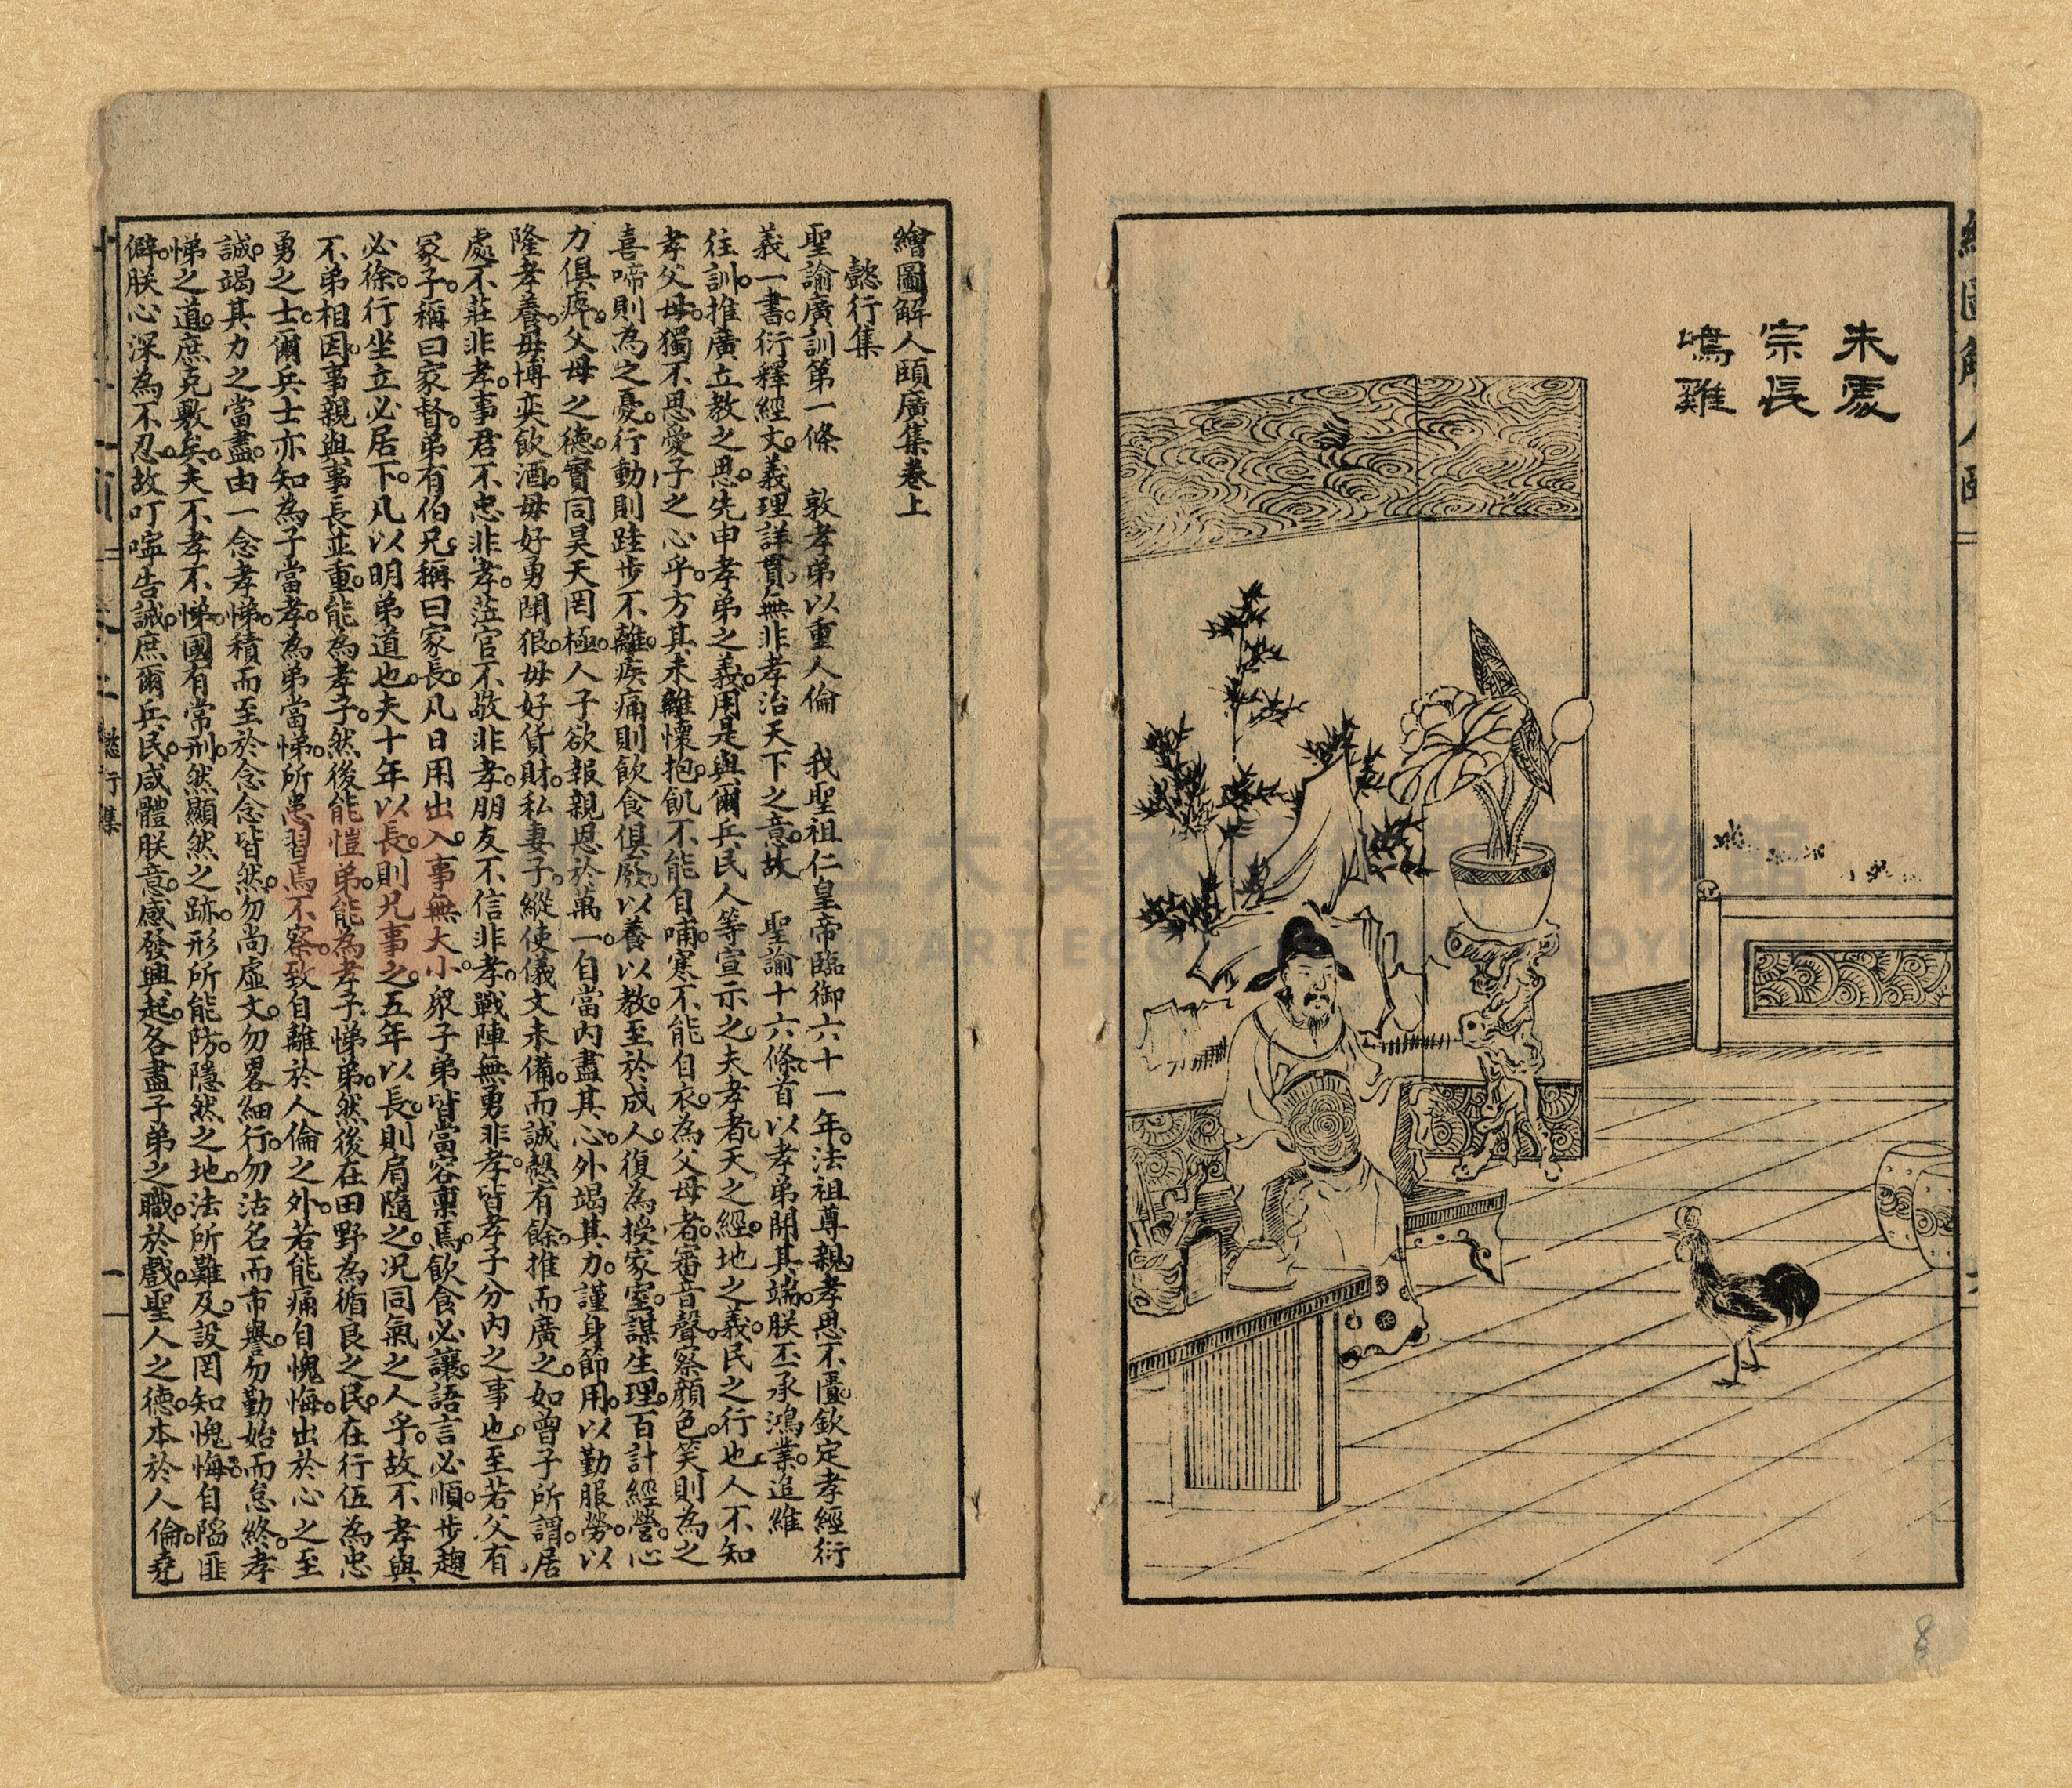 宋處
宗長
鳴雞
繪圖解人頤廣集卷上
懿行集
聖諭廣訓第一條 敦孝弟以重人倫 我聖祖仁皇帝臨御六十一年法祖尊親孝思不匱欽定孝經衍
義一書衍釋經文義理詳貫無非孝治天下之意故 聖諭十六條首以孝弟開其端朕丕承鴻業追維
往訓推廣立教之思先申孝弟之義用是與爾兵民人等宣示之夫孝者天之經地之義民之行也人不知
孝父母獨不思愛子之心乎方其未離懷抱飢不能自哺寒不能自衣為父母者審音聲察顏色笑則為之
喜啼則為之憂行動則跬步不離疾痛則飲食俱廢以養以教至於成人復為授家室謀生理百計經營心
力俱瘁父母之德實同昊天罔極人子欲報親恩於萬一自當內盡其心外竭其力謹身節用以勤服勞以
隆孝養毋博奕飲酒毋好勇鬪狠毋好貨財私妻子縱使儀文未備而誠慤有餘推而廣之如曾子所謂居
處不莊非孝事君不忠非孝蒞官不敬非孝朋友不信非孝戰陣無勇非孝皆孝子分內之事也至若父有
冢子稱曰家督弟有伯兄稱曰家長凡日用出入事無大小眾子弟皆當容稟焉飲食必讓語言必順步趨
必徐行坐立必居下凡以明弟道也夫十年以長則兄事之五年以長則肩隨之況同氣之人乎故不孝與
不弟相因事親與事長並重能為孝子然後能愷弟能為孝子悌弟然後在田野為循良之民在行伍為忠
勇之士爾兵士亦知為子當孝為弟當悌所患習焉不察致自離於人倫之外若能痛自愧悔出於心之至
誠竭其力之當盡由一念孝悌積而至於念念皆然勿尚虛文勿畧細行勿沽名而市譽勿勤始而怠終孝
悌之道庶克敷矣夫不孝不悌國有常刑然顯然之跡形所能防隱然之地法所難及設罔知愧悔自陷匪
僻朕心深為不忍故叮嚀告誡庶爾兵民咸體朕意感發興起各盡子弟之職於戲聖人之德本於人倫堯
懿行集
8